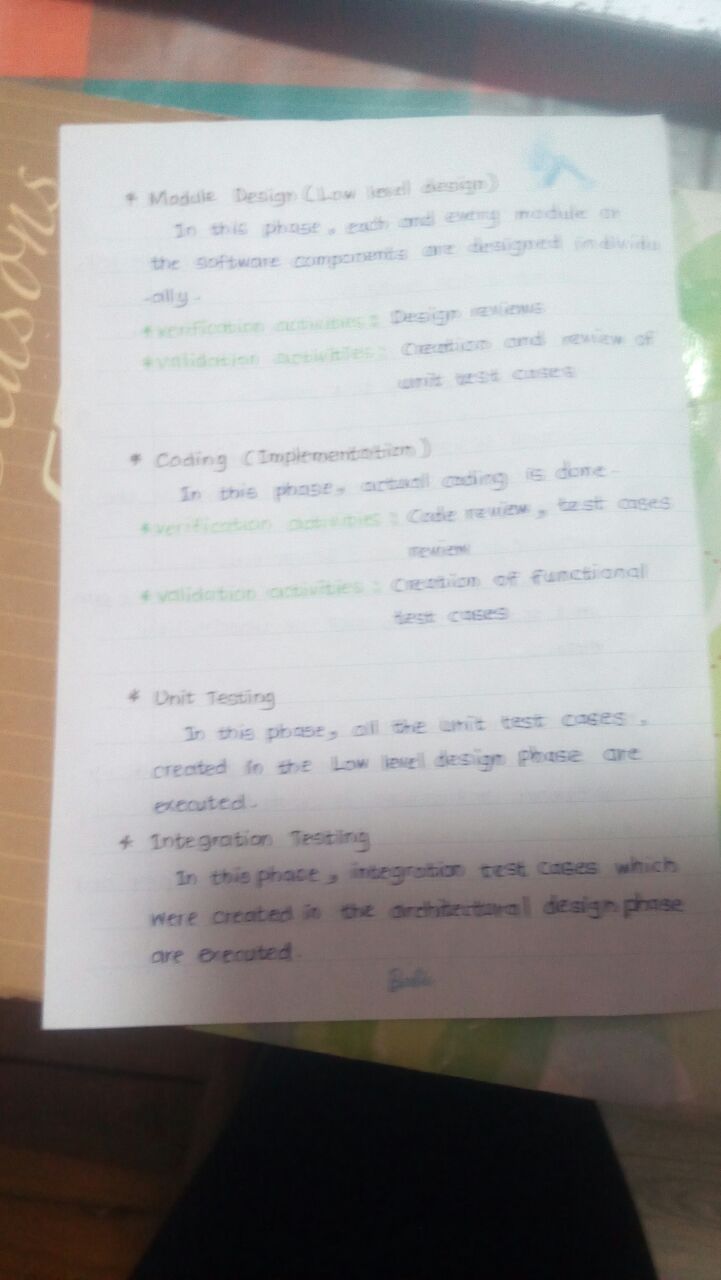 * Module Design (Low level design)
In this phase, each and every module or
the software components are designed individu
-ally.
* verification activities : Design reviews
* validation activities : Creation and review of
unit test cases
* Coding (Implementation)
In this phase, actual coding is done.
* verification activities : Code review, test cases
review
* validation activities : Creation of functional
test cases
* Unit Testing
In this phase, all the unit test cases,
created in the Low level design phase are
executed.
* Integration Testing
In this phase, integration test cases which
were created in the architectural design phase
are executed.
easons